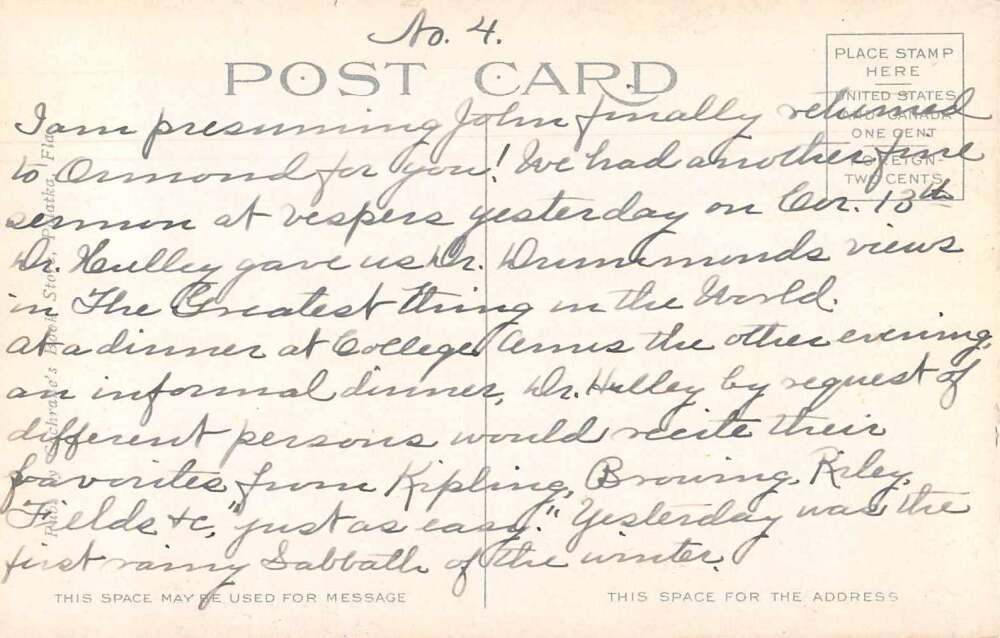 No. 4.
POST CARD
PLACE STAMP
HERE
UNITED STATES
AND CANADA
ONE CENT
FOREIGN-
TWO CENTS
I am presuming John finally returned
to Ormond for you! We had another fine
sermon at vespers yesterday on Cor. 13th
Dr. Hulley gave us Dr. Drummonds views
in The Greatest thing in the World.
At a dinner at College Arms the other evening,
an informal dinner, Dr. Hulley by request of
different persons would recite their
favorites from Kipling, Browing, Riley,
Fields &c, "just as easy." Yesterday was the
first rainy Sabbath of the winter.
Pub. by Cochrane's Book Store, Palatka, Fla.
THIS SPACE MAY BE USED FOR MESSAGE
THIS SPACE FOR THE ADDRESS